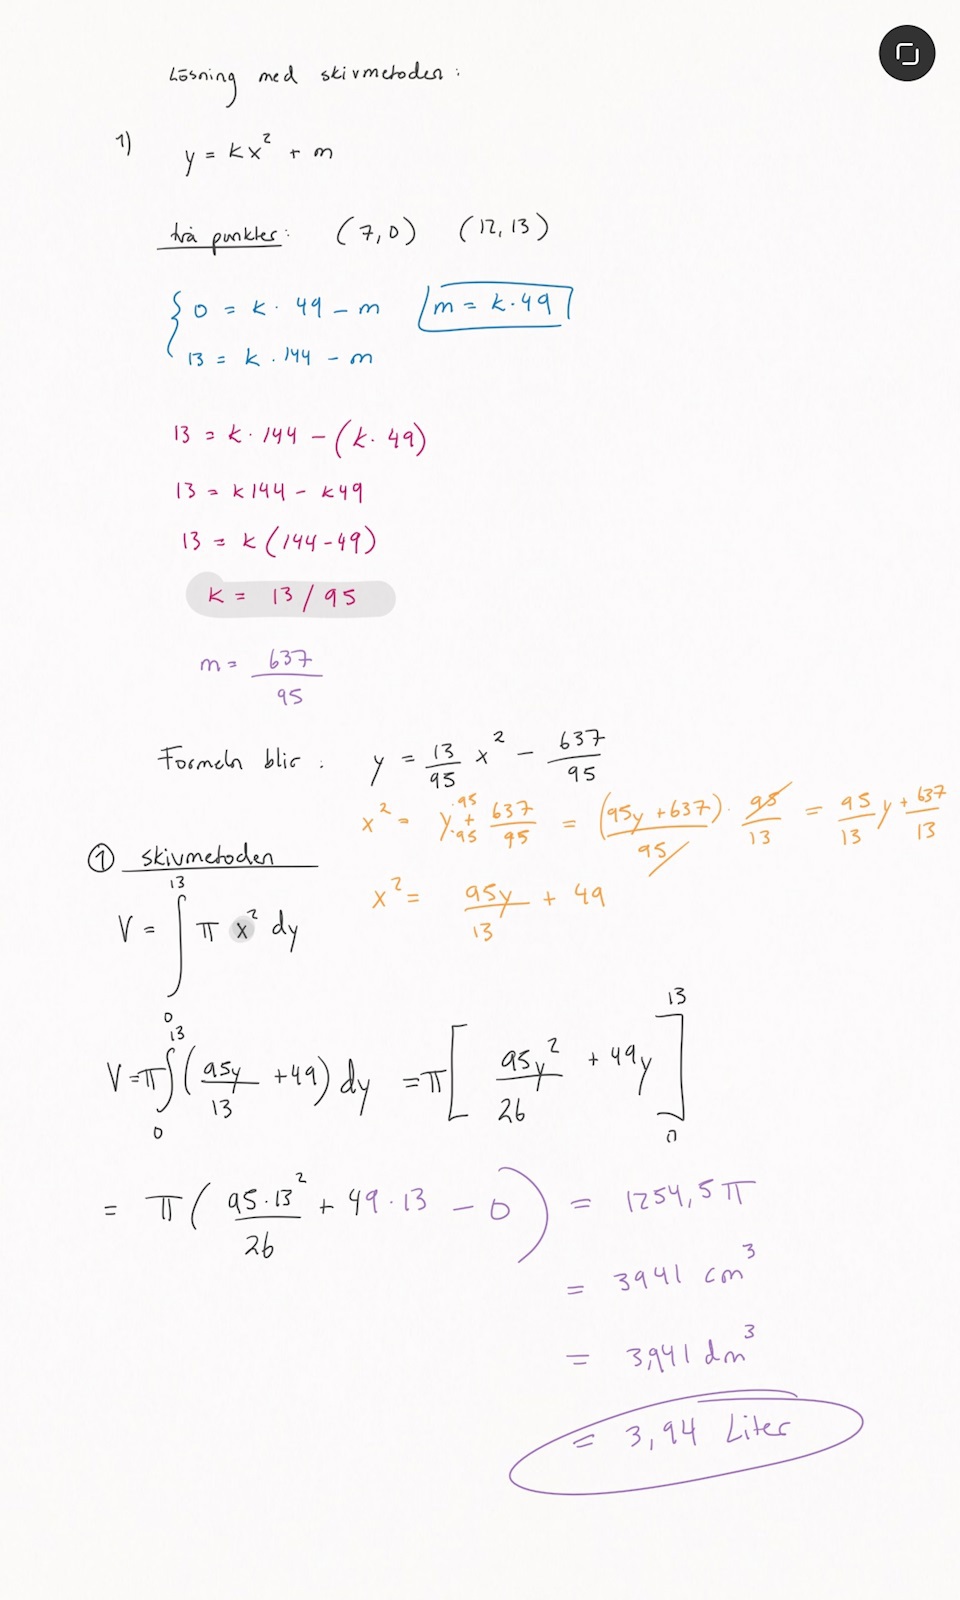 Lösning med skivmetoden :
1) y = kx² + m
två punkter: (7,0) (12,13)
0 = k · 49 - m m = k·49
13 = k · 144 - m
13 = k · 144 - (k · 49)
13 = k144 - k49
13 = k (144-49)
k = 13/95
m = 637/95
Formeln blir : y = 13/95 x² - 637/95
x² = y·95/·95 + 637/95 = (95y + 637)/95 · 95/13 = 95/13 y + 637/13
① skivmetoden
x² = 95y/13 + 49
V = ∫₀¹³ π x² dy
V = π ∫₀¹³ (95y/13 + 49) dy = π [95y²/26 + 49y]₀¹³
= π ( 95·13²/26 + 49·13 - 0 ) = 1254,5 π
= 3941 cm³
= 3,941 dm³
= 3,94 Liter